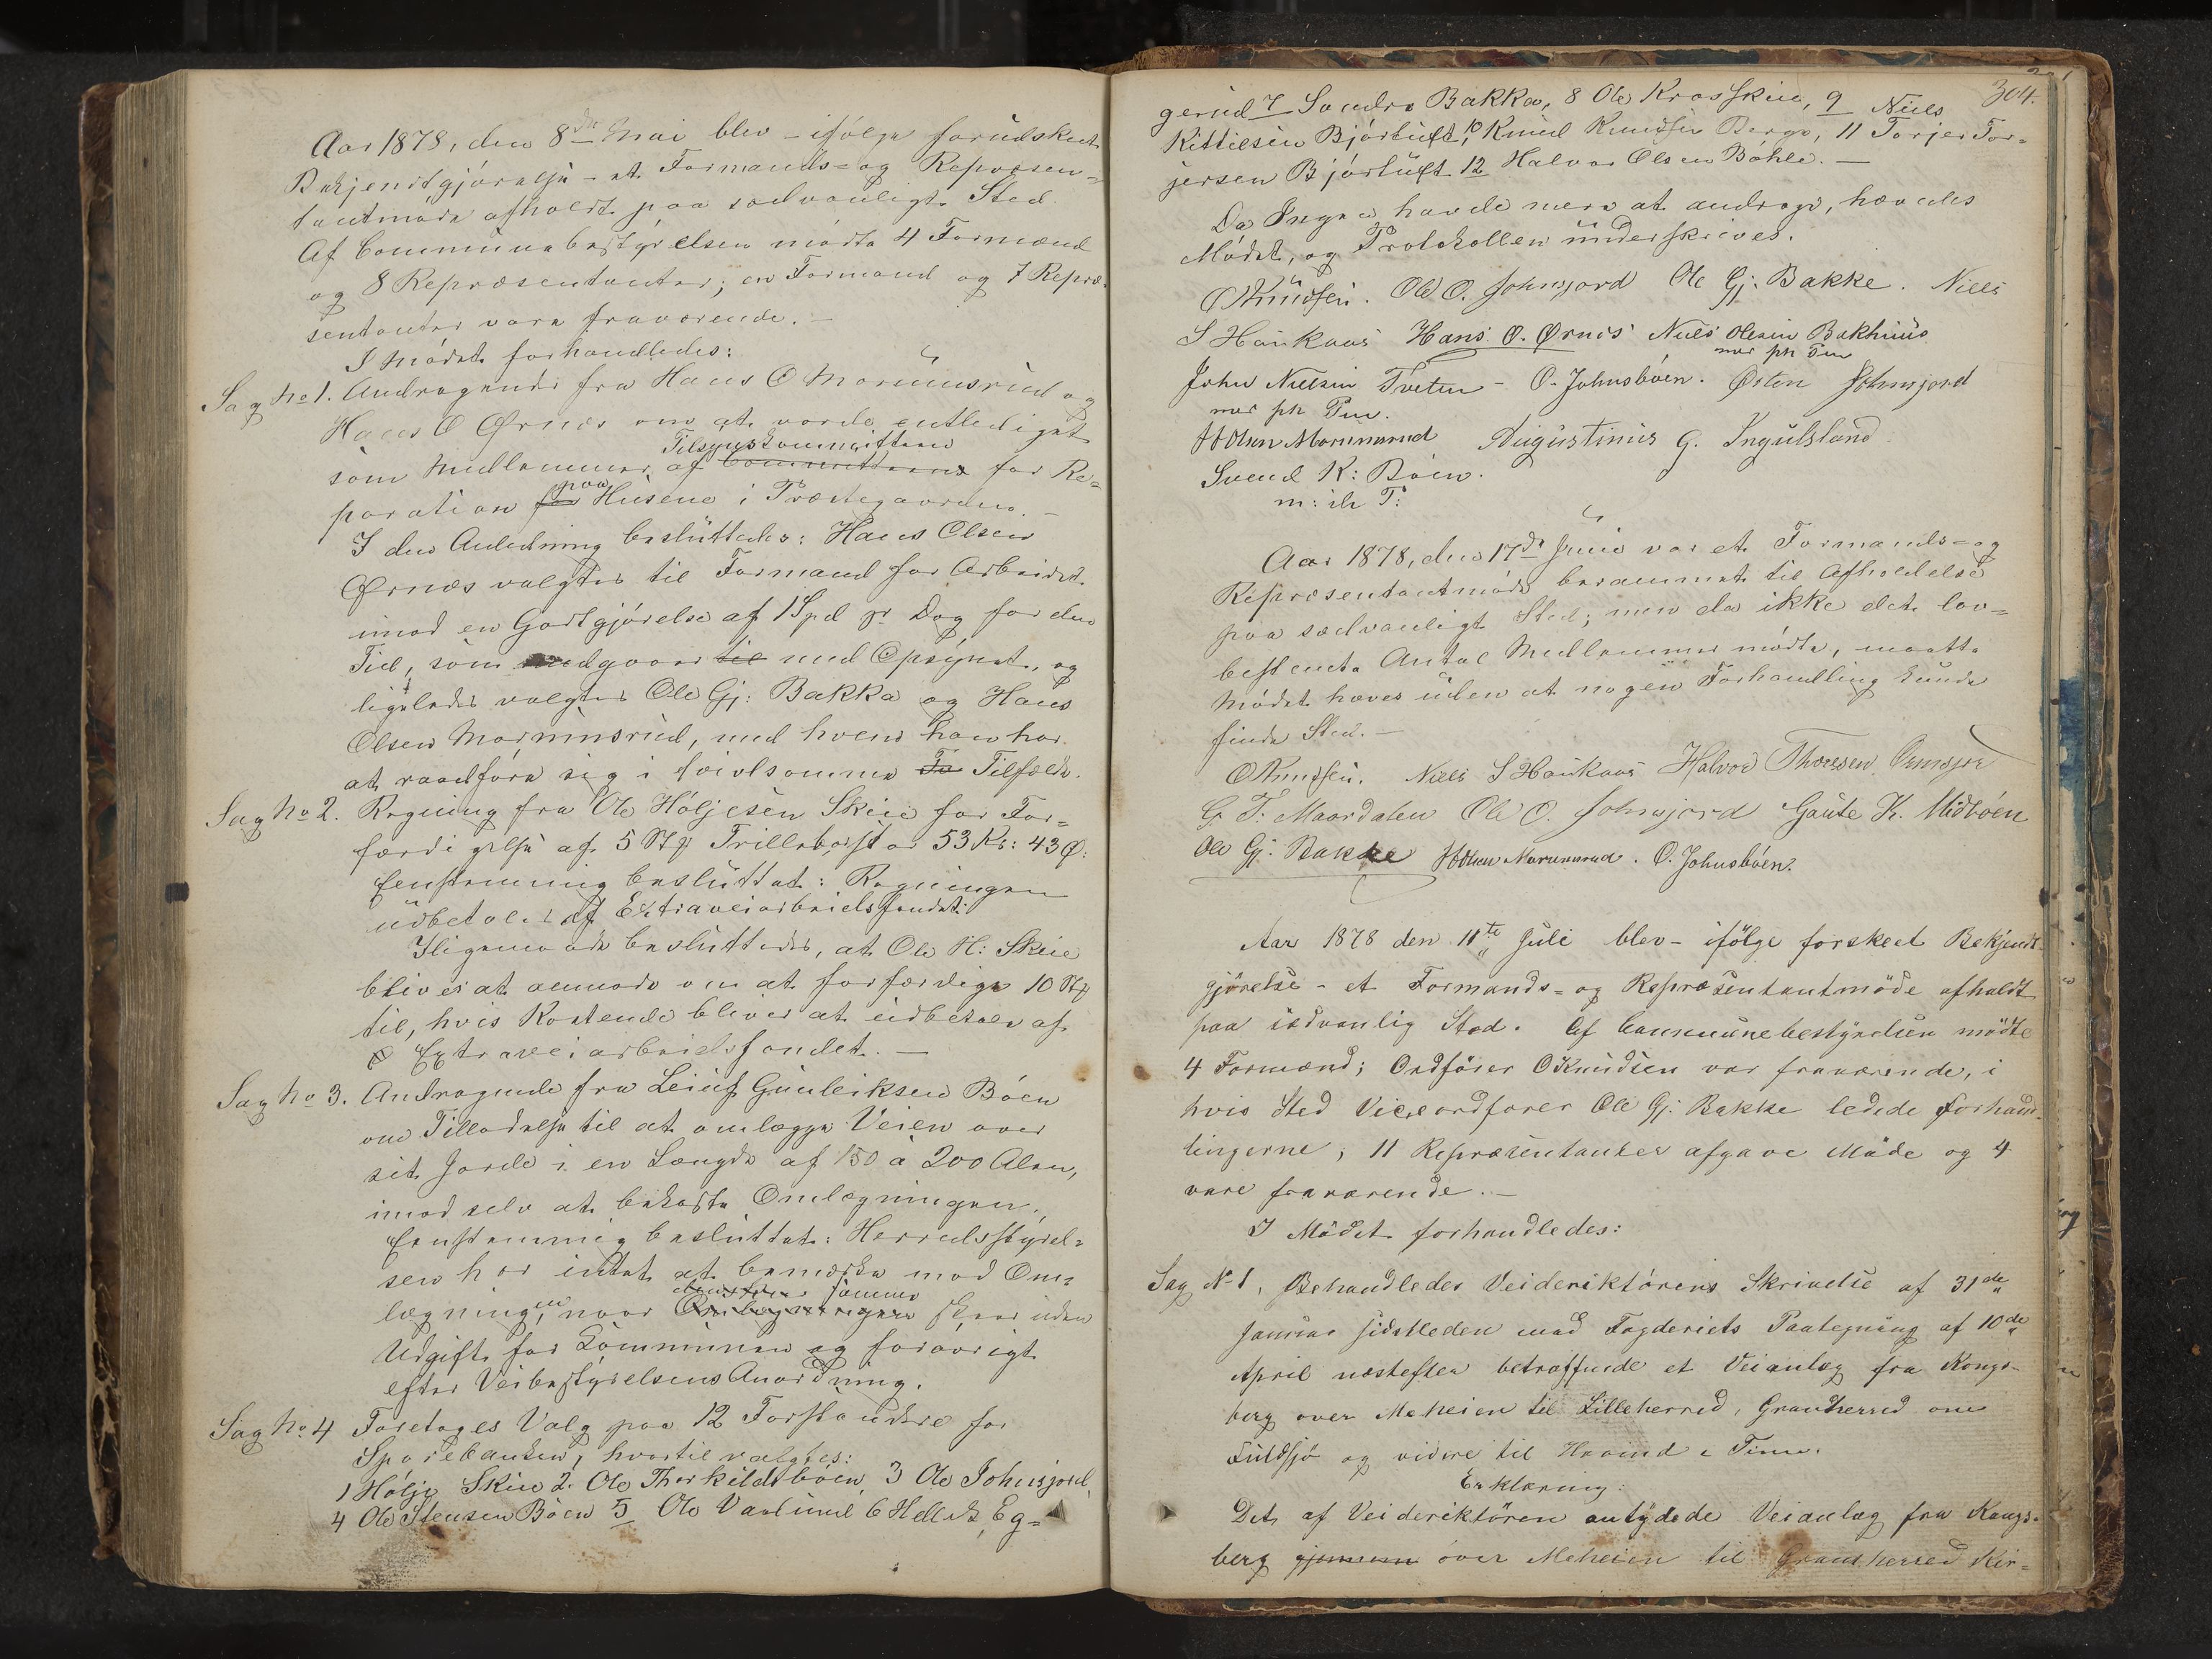 Aar 1878, den 8de Mai blev – ifølge forudskeet
Bekjendtgjørelse – et Formands- og Repræsen-
tantmøde afholdt paa sædvanligt Sted.
Af Communebestyrelsen mødte 4 Formænd
og 8 Repræsentanter; en Formand og 7 Repræ-
sentanter vare fraværende. –
I Mødet forhandledes:
Sag No 1. Andragende fra Hans O Marumsrud og
Hans O Ørnes om at vorde entlediget
Tilsynskommissionen
som Medlemmer af Committeen for Re-
paa
paration for Husene i Præstegaarden. –
I den Anledning besluttedes: Hans Olsen
Ørnæs valgtes til Formand for Arbeidet
imod en Godtgjørelse af 1 Spd pr Dag for den
Tid, som medgaaer til med Opsynet, og
ligeledes valgtes Ole Gj: Bakka og Hans
Olsen Marumsrud, med hvem han har
at raadføre sig i tvivlsomme Ta Tilfælde.
Sag No 2. Regning fra Ole Høljesen Skeie for For-
færdigelse af 5 Stk Trillebører 53 Kr: 43 Ø:
Eenstemmig besluttet: Regningen
udbetales af Extraveiarbeidsfondet.
Iligemaade besluttedes, at Ole H: Skeie
bliver at anmode om at forfærdige 10 Stk
til, hvis Kostende bliver at udbetale af
Extraveiarbeidsfondet. –
Sag No 3. Andragende fra Leiuf Gunleiksen Bøen
om Tilladelse til at omlægge Veien over
sit Jorde i en Længde af 150 à 200 Alen,
imod selv at bekoste Omlægningen.
Eenstemmig besluttet: Herredsstyrel-
sen har intet at bemærke mod Om-
samme
lægningen, naar Omlægningen skeer uden
Udgift for Kommunen og forøvrigt
efter Veibestyrelsens Anordning.
Sag No 4 Foretoges Valg paa 12 Forstandere for
Sparebanken, hvortil valgtes:
1 Hølje Skeie 2. Ole Thorkildsbøen, 3 Ole Johnsjord,
4 Ole Stensen Bøen 5 Ole Varlimd 6 Hellek Eg-
304.
gerud 7 Sondre Bakka, 8 Ole Krasskin, 9 Niels
Kittilsen Bjørtuft, 10 Knud Knudsen Berge, 11 Torjer Tor-
jersen Bjørtuft 12 Halvor Olsen Bøhle. –
Da Ingen havde mere at andrage, hævedes
Mødet, og Protokollen underskrives.
OKnudsen. Ole O. Johnsjord Ole Gj. Bakke. Niels
S Haukaas Hans O. Ørnes Niels Olesen Bakhuus
med ph Pen
John Nielsen Tveten – O. Johnsbøen. Østen Johnsjord
med ph Pen.
HOlsen Marumsrud Augustinus G. Ingulsland
Svend K: Bøen.
m: ih P:
Aar 1878, den 17de Juni var et Formands- og
Repræsentantmøde berammet til Afholdelse
paa sædvanligt Sted; men da ikke det lov-
bestemte Antal Medlemmer mødte, maatte
Mødet hæves uden at nogen Forhandling kunde
finde Sted. –
OKnudsen. Niels S Haukaas Halvor Thorsen Ørnsjor
G. T: Maardalen Ole O. Johnsjord Gaute K. Midbøen
Ole Gj: Bakke HOlsen Marumsrud. O. Johnsbøen.
Aar 1878 den 11te Juli blev – ifölge forskeet Bekjendt-
gjörelse – et Formands- og Repræsentantmöde afholdt
paa sædvanlig Sted. Af Communebestyrelsen mödte
4 Formænd; Ordförer OKnudsen var fraværende, i
hvis Sted Viceordförer Ole Gj: Bakke ledede Forhand-
lingerne; 11 Repræsentanter afgave Möde og 4
vare fraværende. –
I Mödet forhandledes:
Sag No 1, Behandledes Veidirektörens Skrivelse af 31de
Januar sidstleden med Fogderiets Paategning af 10de
April næstefter betræffende et Veianlæg fra Kongs-
berg over Meheien til Lilleherred, Gransherred om
Fuldsjö og videre til Hovind i Tinn.
Erklæring:
Det af Veidirektören antydede Veianlæg fra Kongs-
berg gjennem over Meheien til Gransherred Kir-